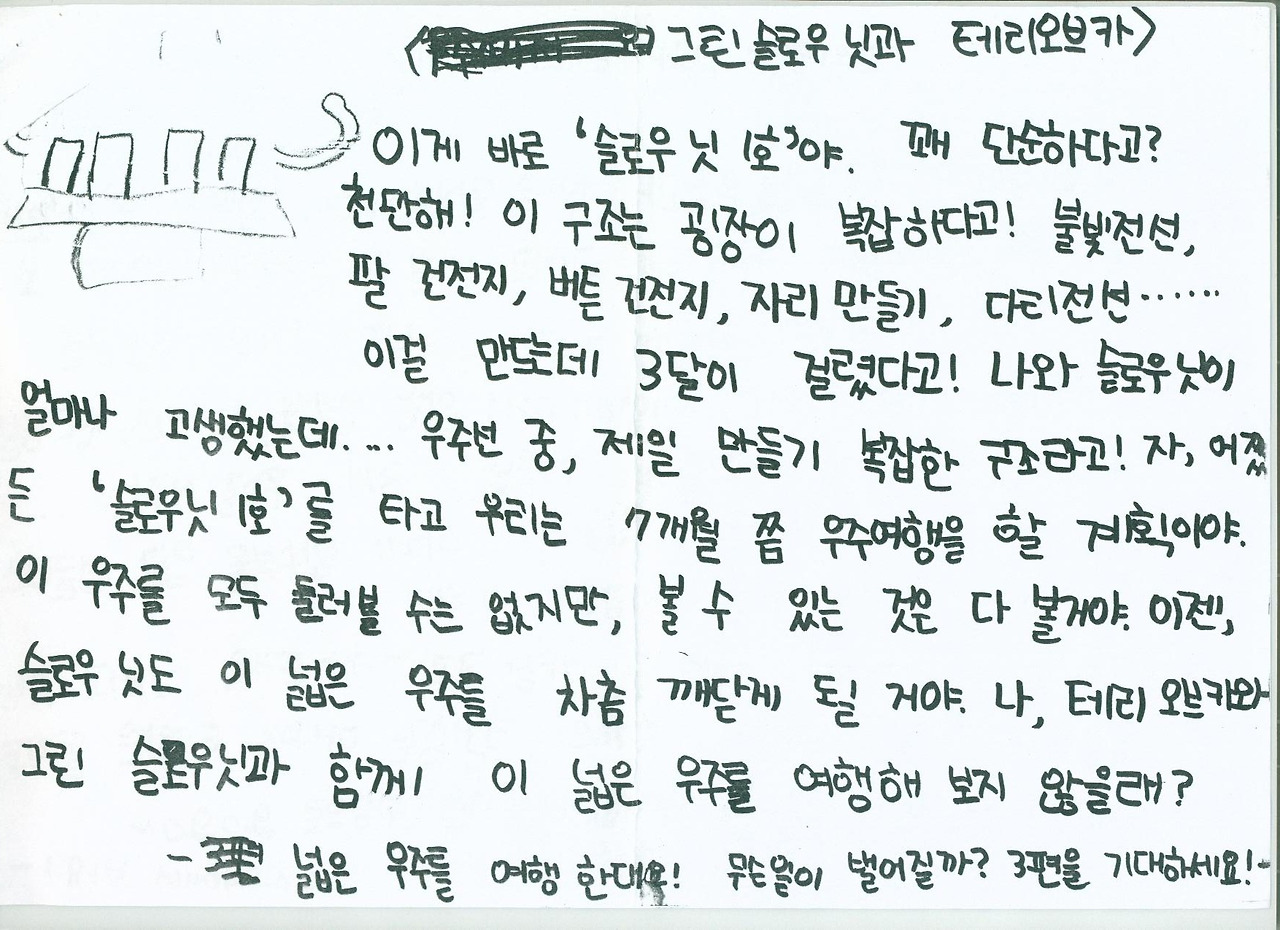 <그린 슬로우 닛과 테리오브카>
이게 바로 '슬로우 닛 1호'야. 꽤 단순하다고?
천만해! 이 구조는 굉장이 복잡하다고! 불빛전선,
팔 건전지, 버튼 건전지, 자리 만들기, 다티전선……
이걸 만드는데 3달이 걸렸다고! 나와 슬로우닛이
얼마나 고생했는데.... 우주선 중, 제일 만들기 복잡한 구조라고! 자, 어쨌
든 '슬로우닛 1호'를 타고 우리는 7개월 쯤 우주여행을 할 계획이야.
이 우주를 모두 둘러볼 수는 없지만, 볼 수 있는 것은 다 볼거야. 이젠,
슬로우 닛도 이 넓은 우주를 차츰 깨닫게 될 거야. 나, 테리 오브카와
그린 슬로우닛과 함께 이 넓은 우주를 여행해 보지 않을래?
- 넓은 우주를 여행 한대요! 무슨일이 벌어질까? 3편을 기대하세요!-